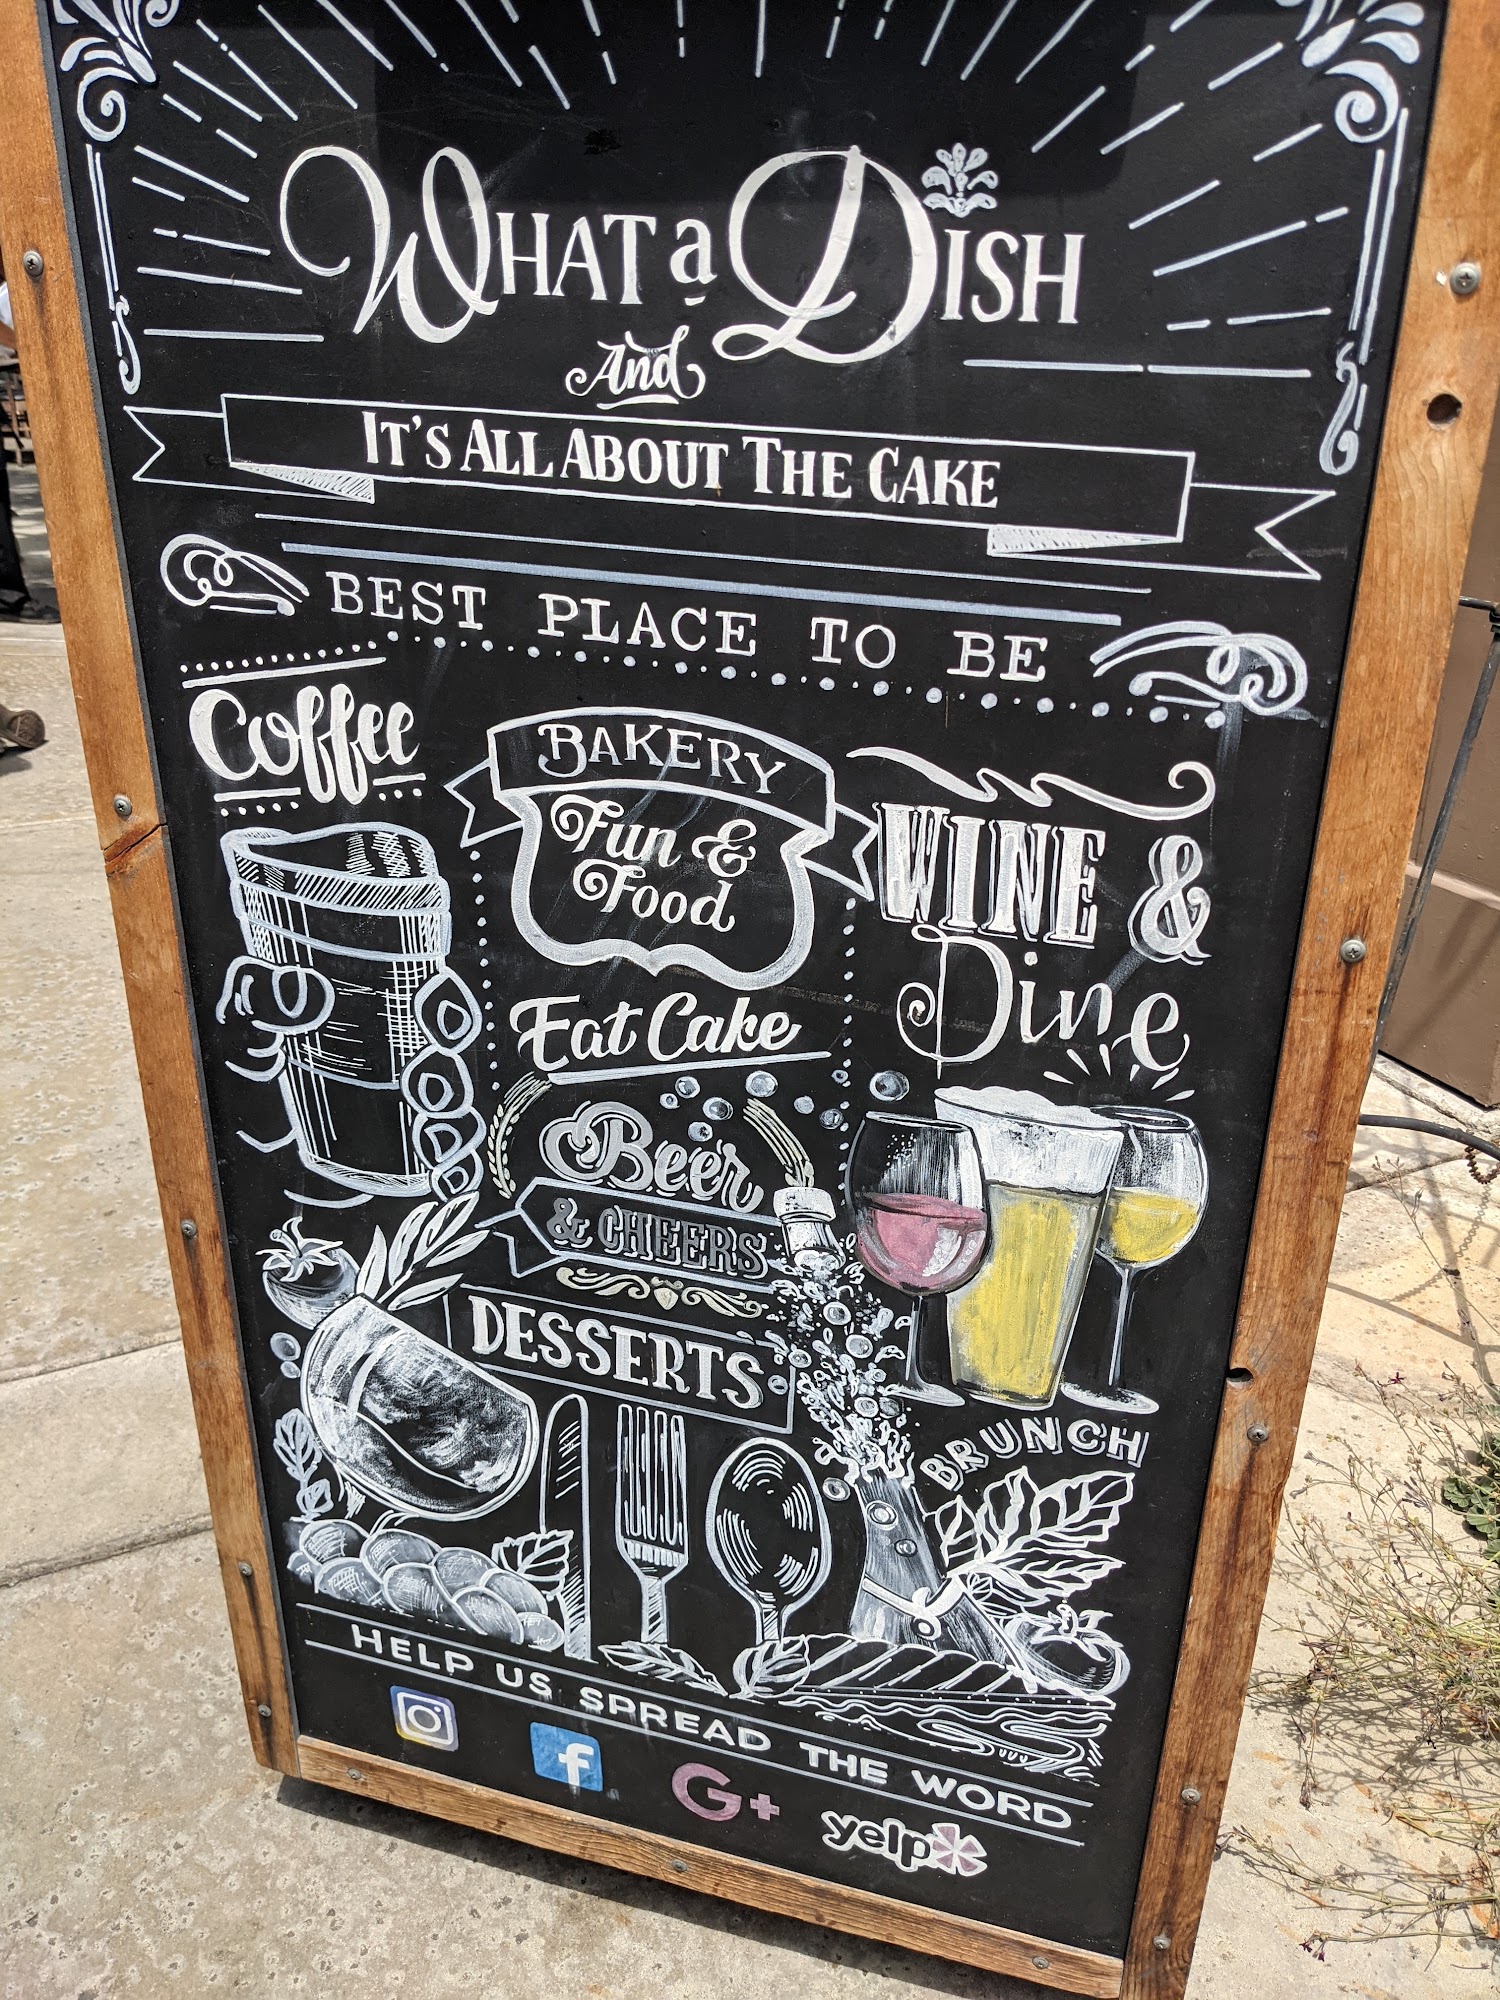 WHAT a DISH
And
IT'S ALL ABOUT THE CAKE
BEST PLACE TO BE
Coffee
BAKERY
Fun &
Food
Eat Cake
WINE &
Dine
Beer
& CHEERS
DESSERTS
BRUNCH
HELP US SPREAD THE WORD
f
G+
yelp